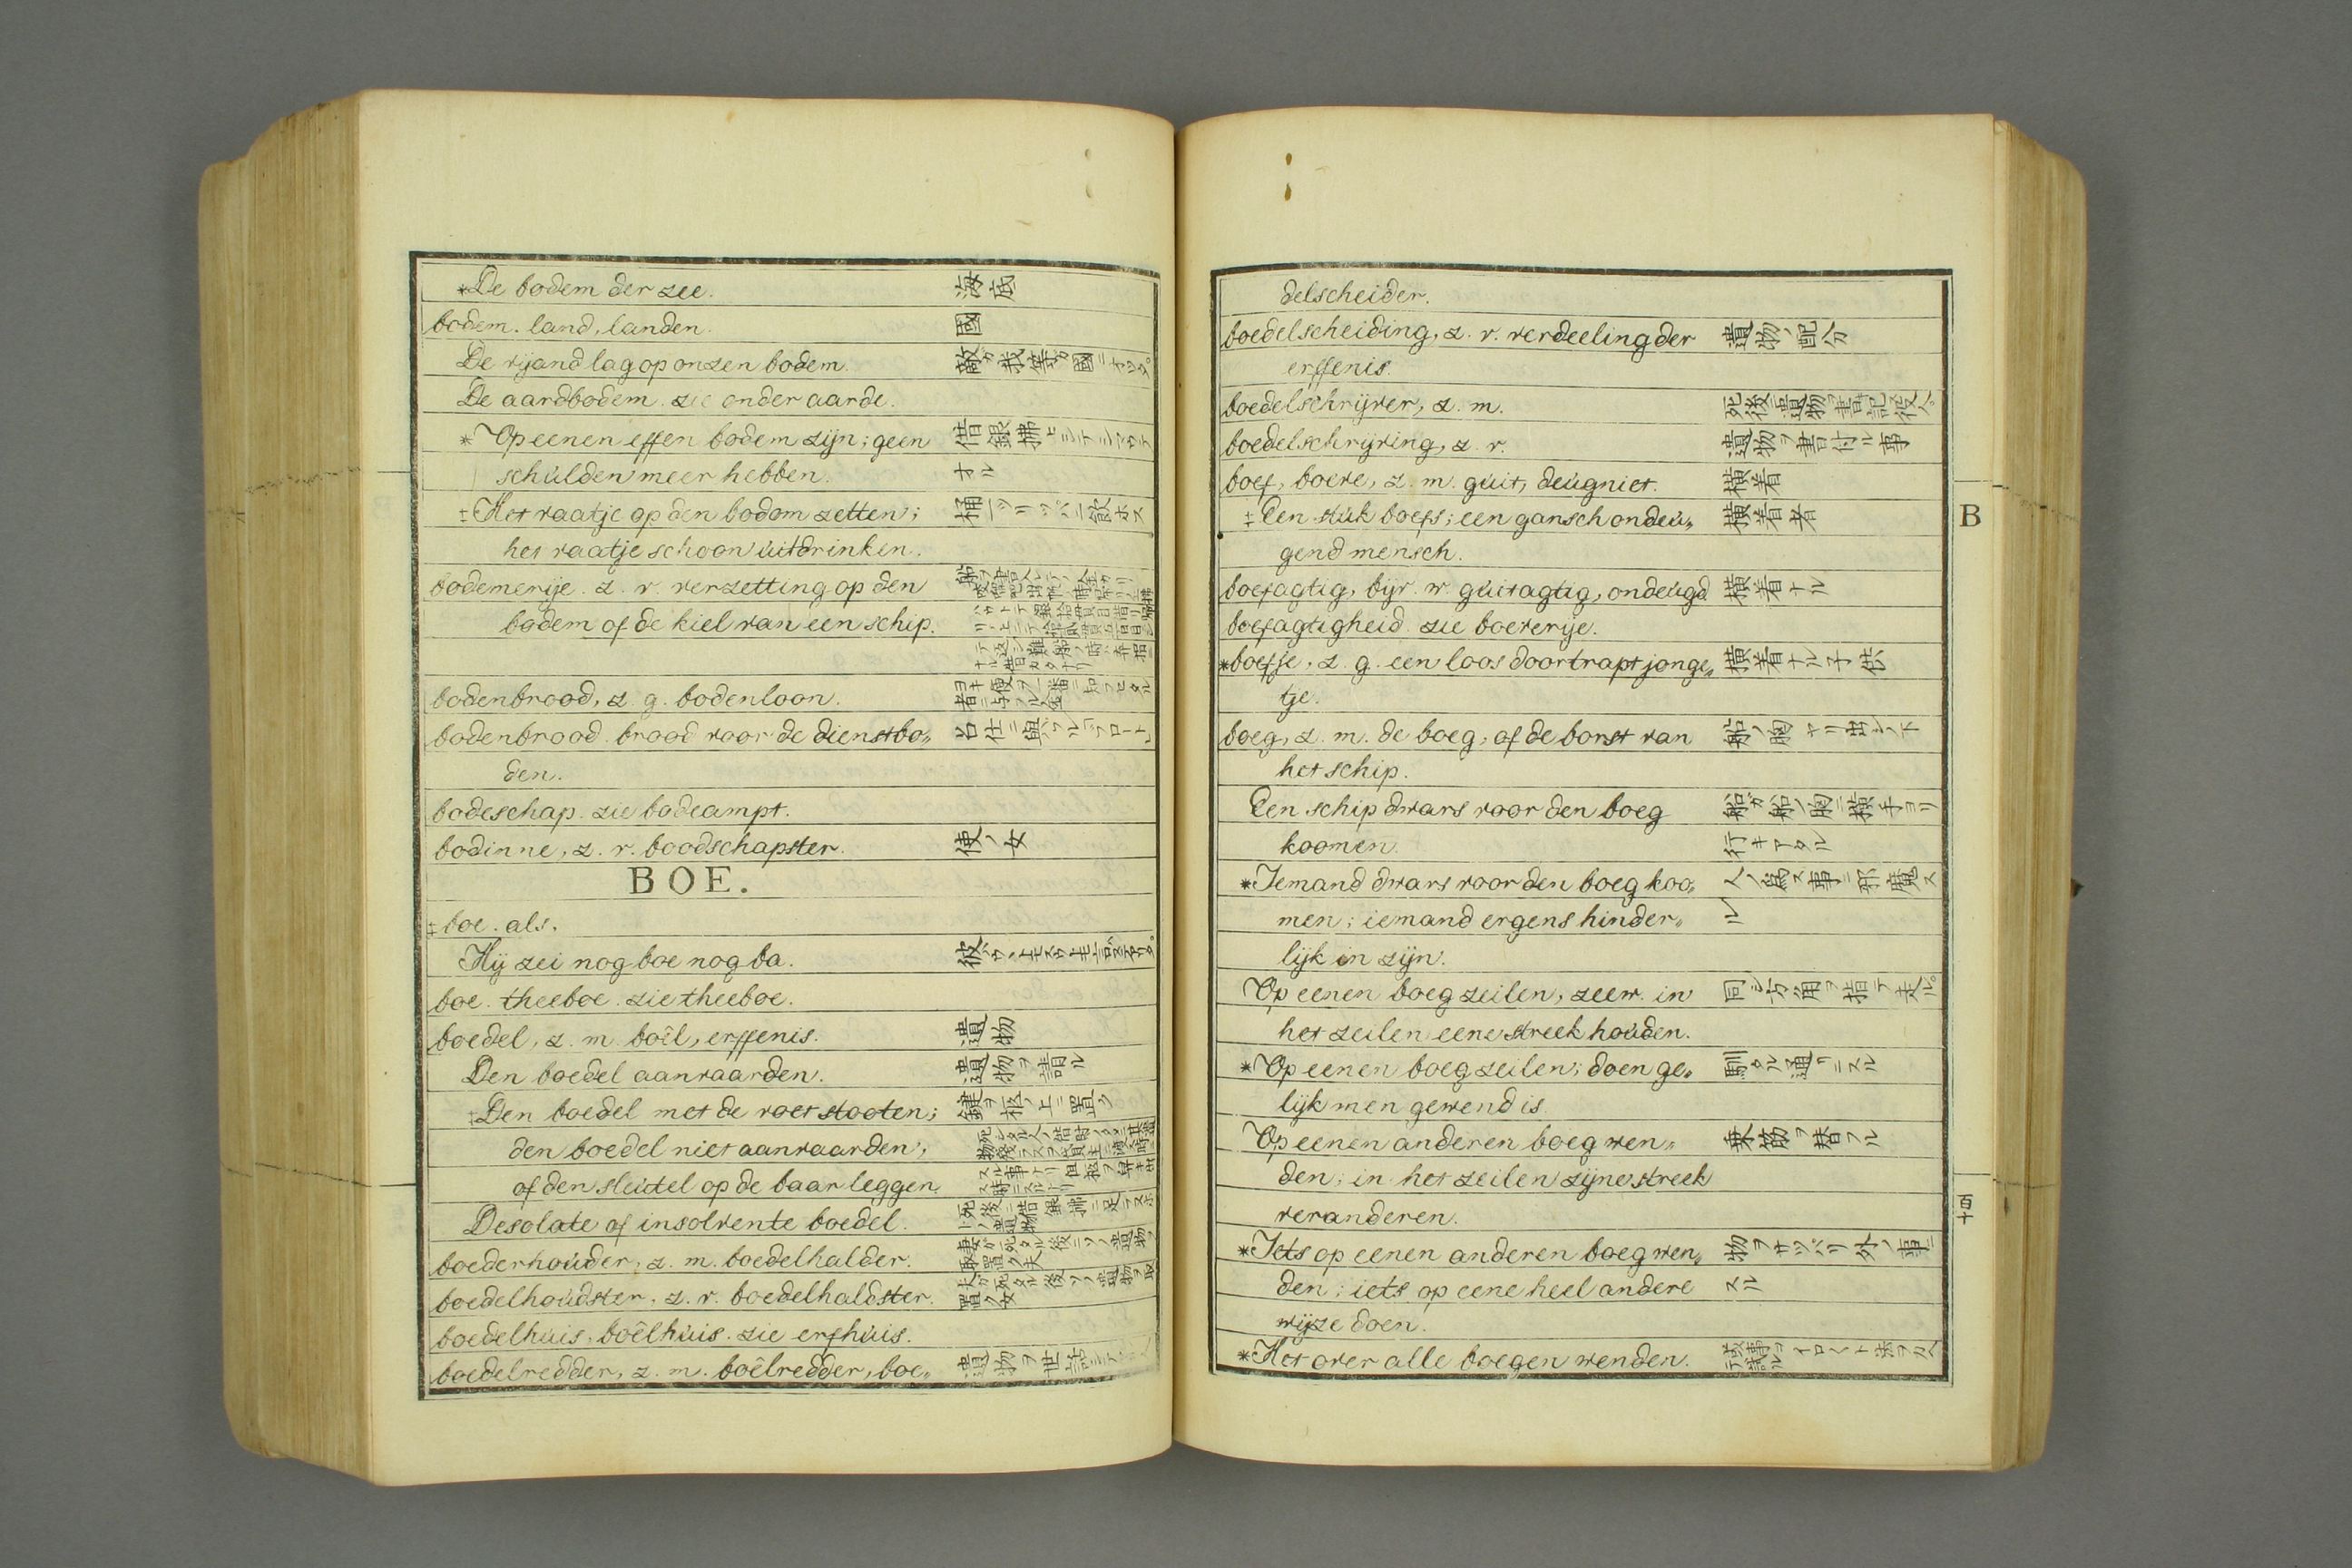 *De bodem der zee. 海底
bodem. land, landen. 國
De vijand lag op onzen bodem. 敵ガ我等ガ國ニオツタ。
De aardbodem. zie onder aarde.
*Op eenen effen bodem zijn; geen 借銀拂ヒシテシマウテ
schulden meer hebben. オル
‡Het vaatje op den bodem zetten; 桶一ツリツパニ飲ホス
het vaatje schoon uitdrinken.
bodemerije. z. v. verzetting op den
bodem of de kiel van een schip.
bodenbrood, z. g. bodenloon.
bodenbrood. brood voor de dienstbo„
den.
bodeschap. zie bodeampt.
bodinne, z. v. boodschapster. 使ノ女
BOE.
‡boe. als.
Hij zei nog boe nog ba.
boe. theeboe. zie theeboe.
boedel, z. m. boêl, erffenis. 遺物
Den boedel aanvaarden. 遺物ヲ請ル
‡Den boedel met de voet stooten; 鍵ヲ柩ノ上ニ置ク
den boedel niet aanvaarden,
of den sleutel op de baar leggen.
Desolate of insolvente boedel.
boederhouder, z. m. boedelhalder. 妻ガ死タル後ニソノ遺物取置ク夫
boedelhoudster. z. v. boedelhaldster. 夫ガ死タル後ソノ遺物ヲ取置ク女
boedelhuis, boêlhuis. zie erfhuis.
boedelredder, z. m. boêlredder, boe„
delscheider.
boedelscheiding, z. v. verdeeling der 遺物ノ配分
erffenis.
boedelschrijver, z. m. 死後ニ遺物ヲ書記役人。
boedelschrijving, z. v. 遺物ヲ書付ル事
boef, boeve, z. m. guit, deugniet. 横着
‡Een stuk boefs; een gansch ondeu„ 横着者
gend mensch.
boefagtig, bijv. w. guitagtig, ondeugd 横着ナル
boefagtigheid. zie boeverije.
*boefje, z. g. een loos doortrapt jonge„ 横着ナル子供
tje.
boeg, z. m. de boeg, of de borst van 船ノ胸ヤリ出シノ下
het schip.
Een schip dwars voor den boeg 船ガ船ノ胸ニ横手ヨリ
koomen. 行キアタル
*Iemand dwars voor den boeg koo„ 人ノ為ス事ニ邪魔ス
men; iemand ergens hinder„ ル
lijk in zijn.
Op eenen boeg zeilen, zeew. in 同シ方角ヲ指テ走ル。
het zeilen eene streek houden.
*Op eenen boeg zeilen; doen ge„ 馴タル通リニスル
lijk men gewend is.
Op eenen anderen boeg wen„ 乗筋ヲ替フル
den; in het zeilen zijne streek
veranderen.
*Iets op eenen anderen boeg wen„ 物ヲサツパリ外ノ事ニ
den; iets op eene heel andere スル
wijze doen.
*Het over alle boegen wenden.
B
百十